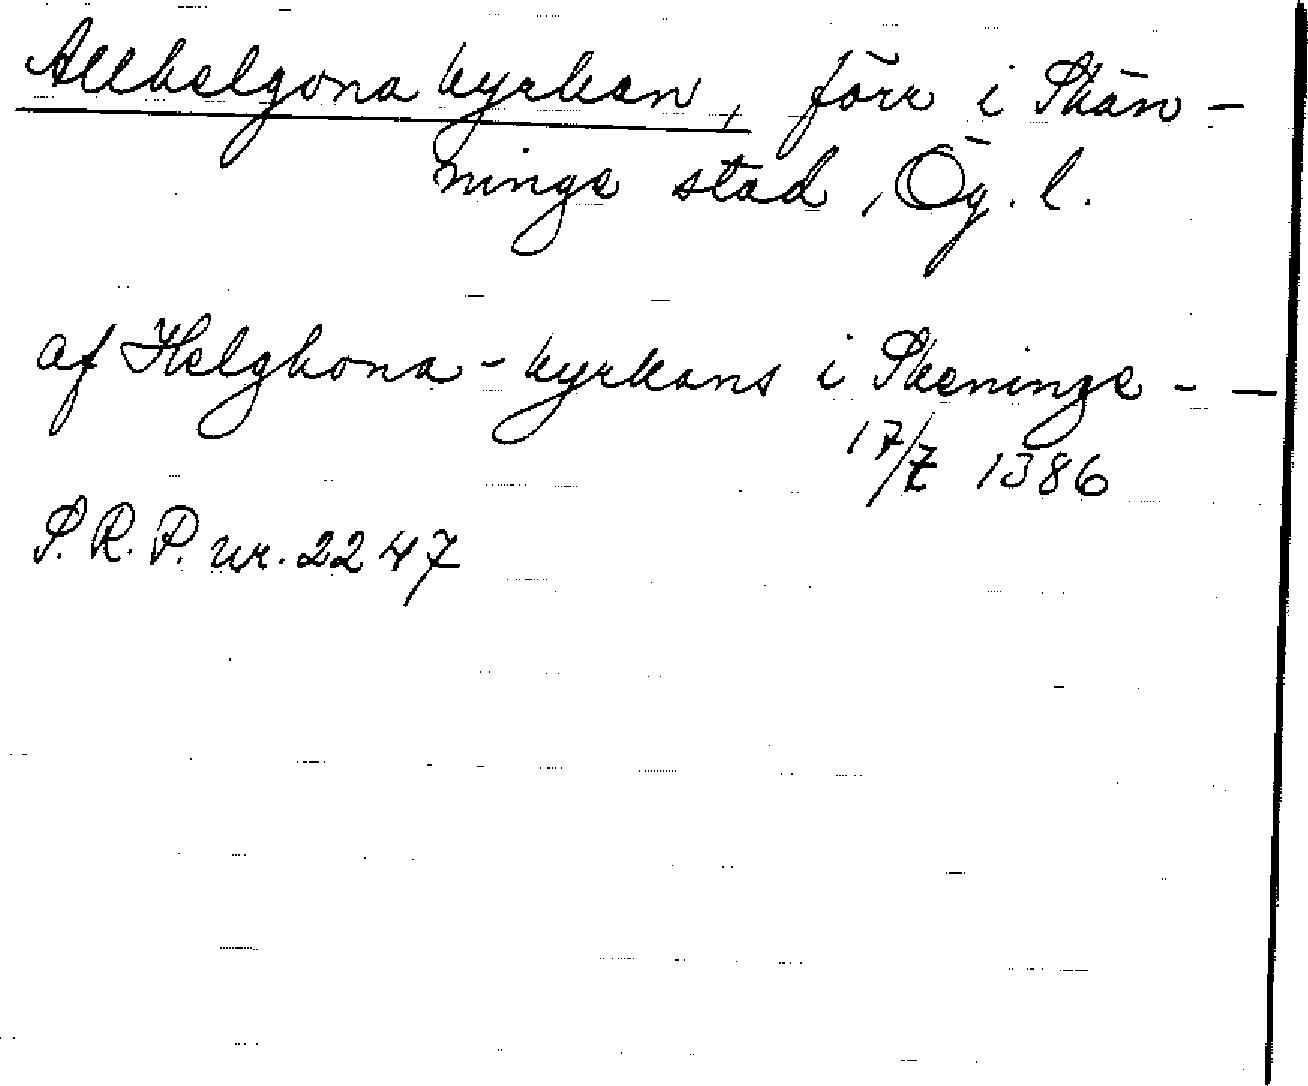 Allhelgona kyrkan, förr i Skän-
ninge stad, Ög. l.
af Helghona-kyrkans i Skeninge - -
17/7 1386
S. R. P. nr. 2247